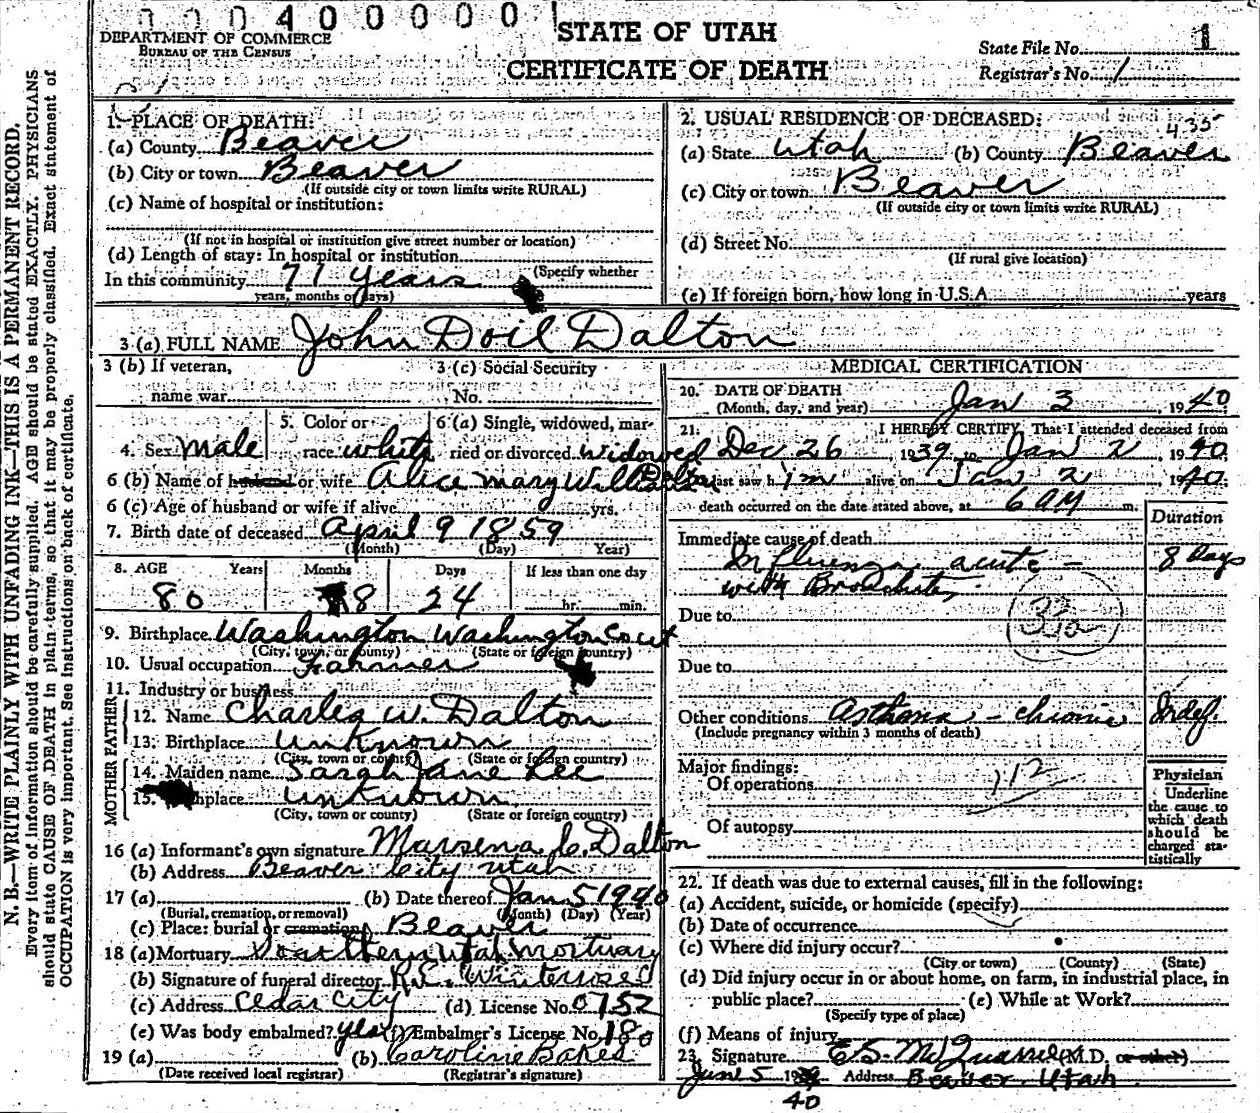 0 0 0 4 0 0 0 0 0 1
DEPARTMENT OF COMMERCE
BUREAU OF THE CENSUS
STATE OF UTAH
CERTIFICATE OF DEATH
State File No. 1
Registrar's No. 1
N. B.—WRITE PLAINLY WITH UNFADING INK—THIS IS A PERMANENT RECORD.
Every item of information should be carefully supplied. AGE should be stated EXACTLY. PHYSICIANS
should state CAUSE OF DEATH in plain terms, so that it may be properly classified. Exact statement of
OCCUPATION is very important. See instructions on back of certificate.
1. PLACE OF DEATH:
(a) County Beaver
(b) City or town Beaver
(If outside city or town limits write RURAL)
(c) Name of hospital or institution:
(If not in hospital or institution give street number or location)
(d) Length of stay: In hospital or institution
(Specify whether
In this community 77 years
years, months or days)
2. USUAL RESIDENCE OF DECEASED:
435
(a) State Utah (b) County Beaver
(c) City or town Beaver
(If outside city or town limits write RURAL)
(d) Street No.
(If rural give location)
(e) If foreign born, how long in U.S.A. years
3 (a) FULL NAME John Doil Dalton
3 (b) If veteran,
name war
3 (c) Social Security
No.
4. Sex Male
5. Color or
race white
6 (a) Single, widowed, mar-
ried or divorced Widowed
6 (b) Name of husband or wife Alice Mary
6 (c) Age of husband or wife if alive yrs.
7. Birth date of deceased April 9 1859
(Month) (Day) Year)
8. AGE Years Months Days If less than one day
80 8 24 hr. min.
9. Birthplace Washington Washington
(City, town, or county) (State or foreign country)
10. Usual occupation Farmer
11. Industry or business
FATHER
12. Name Charles W. Dalton
13. Birthplace Unknown
(City, town or county) (State or foreign country)
MOTHER
14. Maiden name Sarah Jane Lee
15. hplace Unknown
(City, town or county) (State or foreign country)
16 (a) Informant's own signature Marsena C. Dalton
(b) Address Beaver City Utah
17 (a) (b) Date thereof Jan 5 1940
(Burial, cremation, or removal) (Month) (Day) (Year)
(c) Place: burial or cremation Beaver
18 (a) Mortuary Southern Utah Mortuary
(b) Signature of funeral director
(c) Address Cedar City (d) License No. 0752
(e) Was body embalmed? yes (f) Embalmer's License No. 180
19 (a) (b) Caroline Bakes
(Date received local registrar) (Registrar's signature)
MEDICAL CERTIFICATION
20. DATE OF DEATH
(Month, day, and year) Jan 3 1940
21. I HEREBY CERTIFY, That I attended deceased from
Dec 26 1939 to Jan 2 1940.
I last saw him alive on Jan 2 1940.
death occurred on the date stated above, at 6 AM m.
Duration
Immediate cause of death
Influenza acute — 8 Days
with Bronchitis
Due to
Due to
Other conditions Asthma - chronic Indef.
(Include pregnancy within 3 months of death)
Major findings:
Of operations 112
Of autopsy
Physician
Underline
the cause to
which death
should be
charged sta-
tistically
22. If death was due to external causes, fill in the following:
(a) Accident, suicide, or homicide (specify)
(b) Date of occurrence
(c) Where did injury occur?
(City or town) (County) (State)
(d) Did injury occur in or about home, on farm, in industrial place, in
public place? (e) While at Work?
(Specify type of place)
(f) Means of injury
23. Signature (M.D. or other)
June 5 19 40 Address Beaver Utah